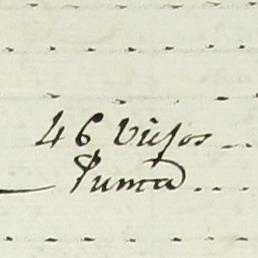 46 Viejos
Puma